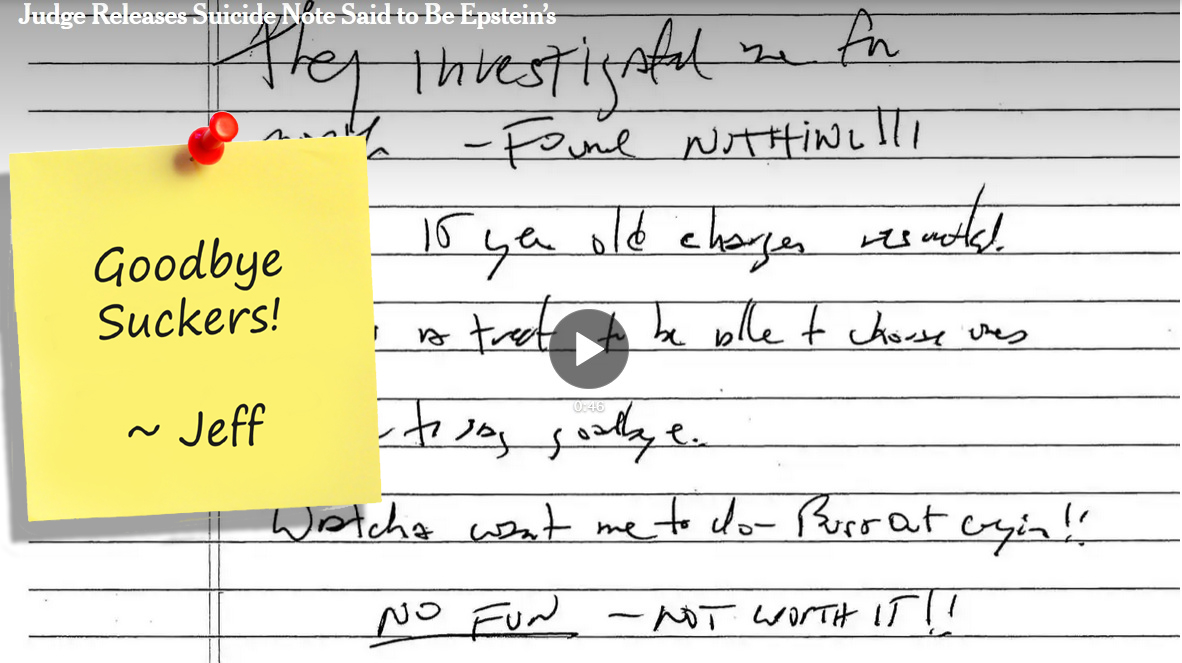 Judge Releases Suicide Note Said to Be Epstein's
They investigated me for
month - Found NOTHING!!!
15 year old charges resulted.
is a treat to be able to choose ones
to say goodbye.
Watcha want me to do - Bust out cryin!!
NO FUN - NOT WORTH IT!!
Goodbye
Suckers!
~ Jeff
0:46